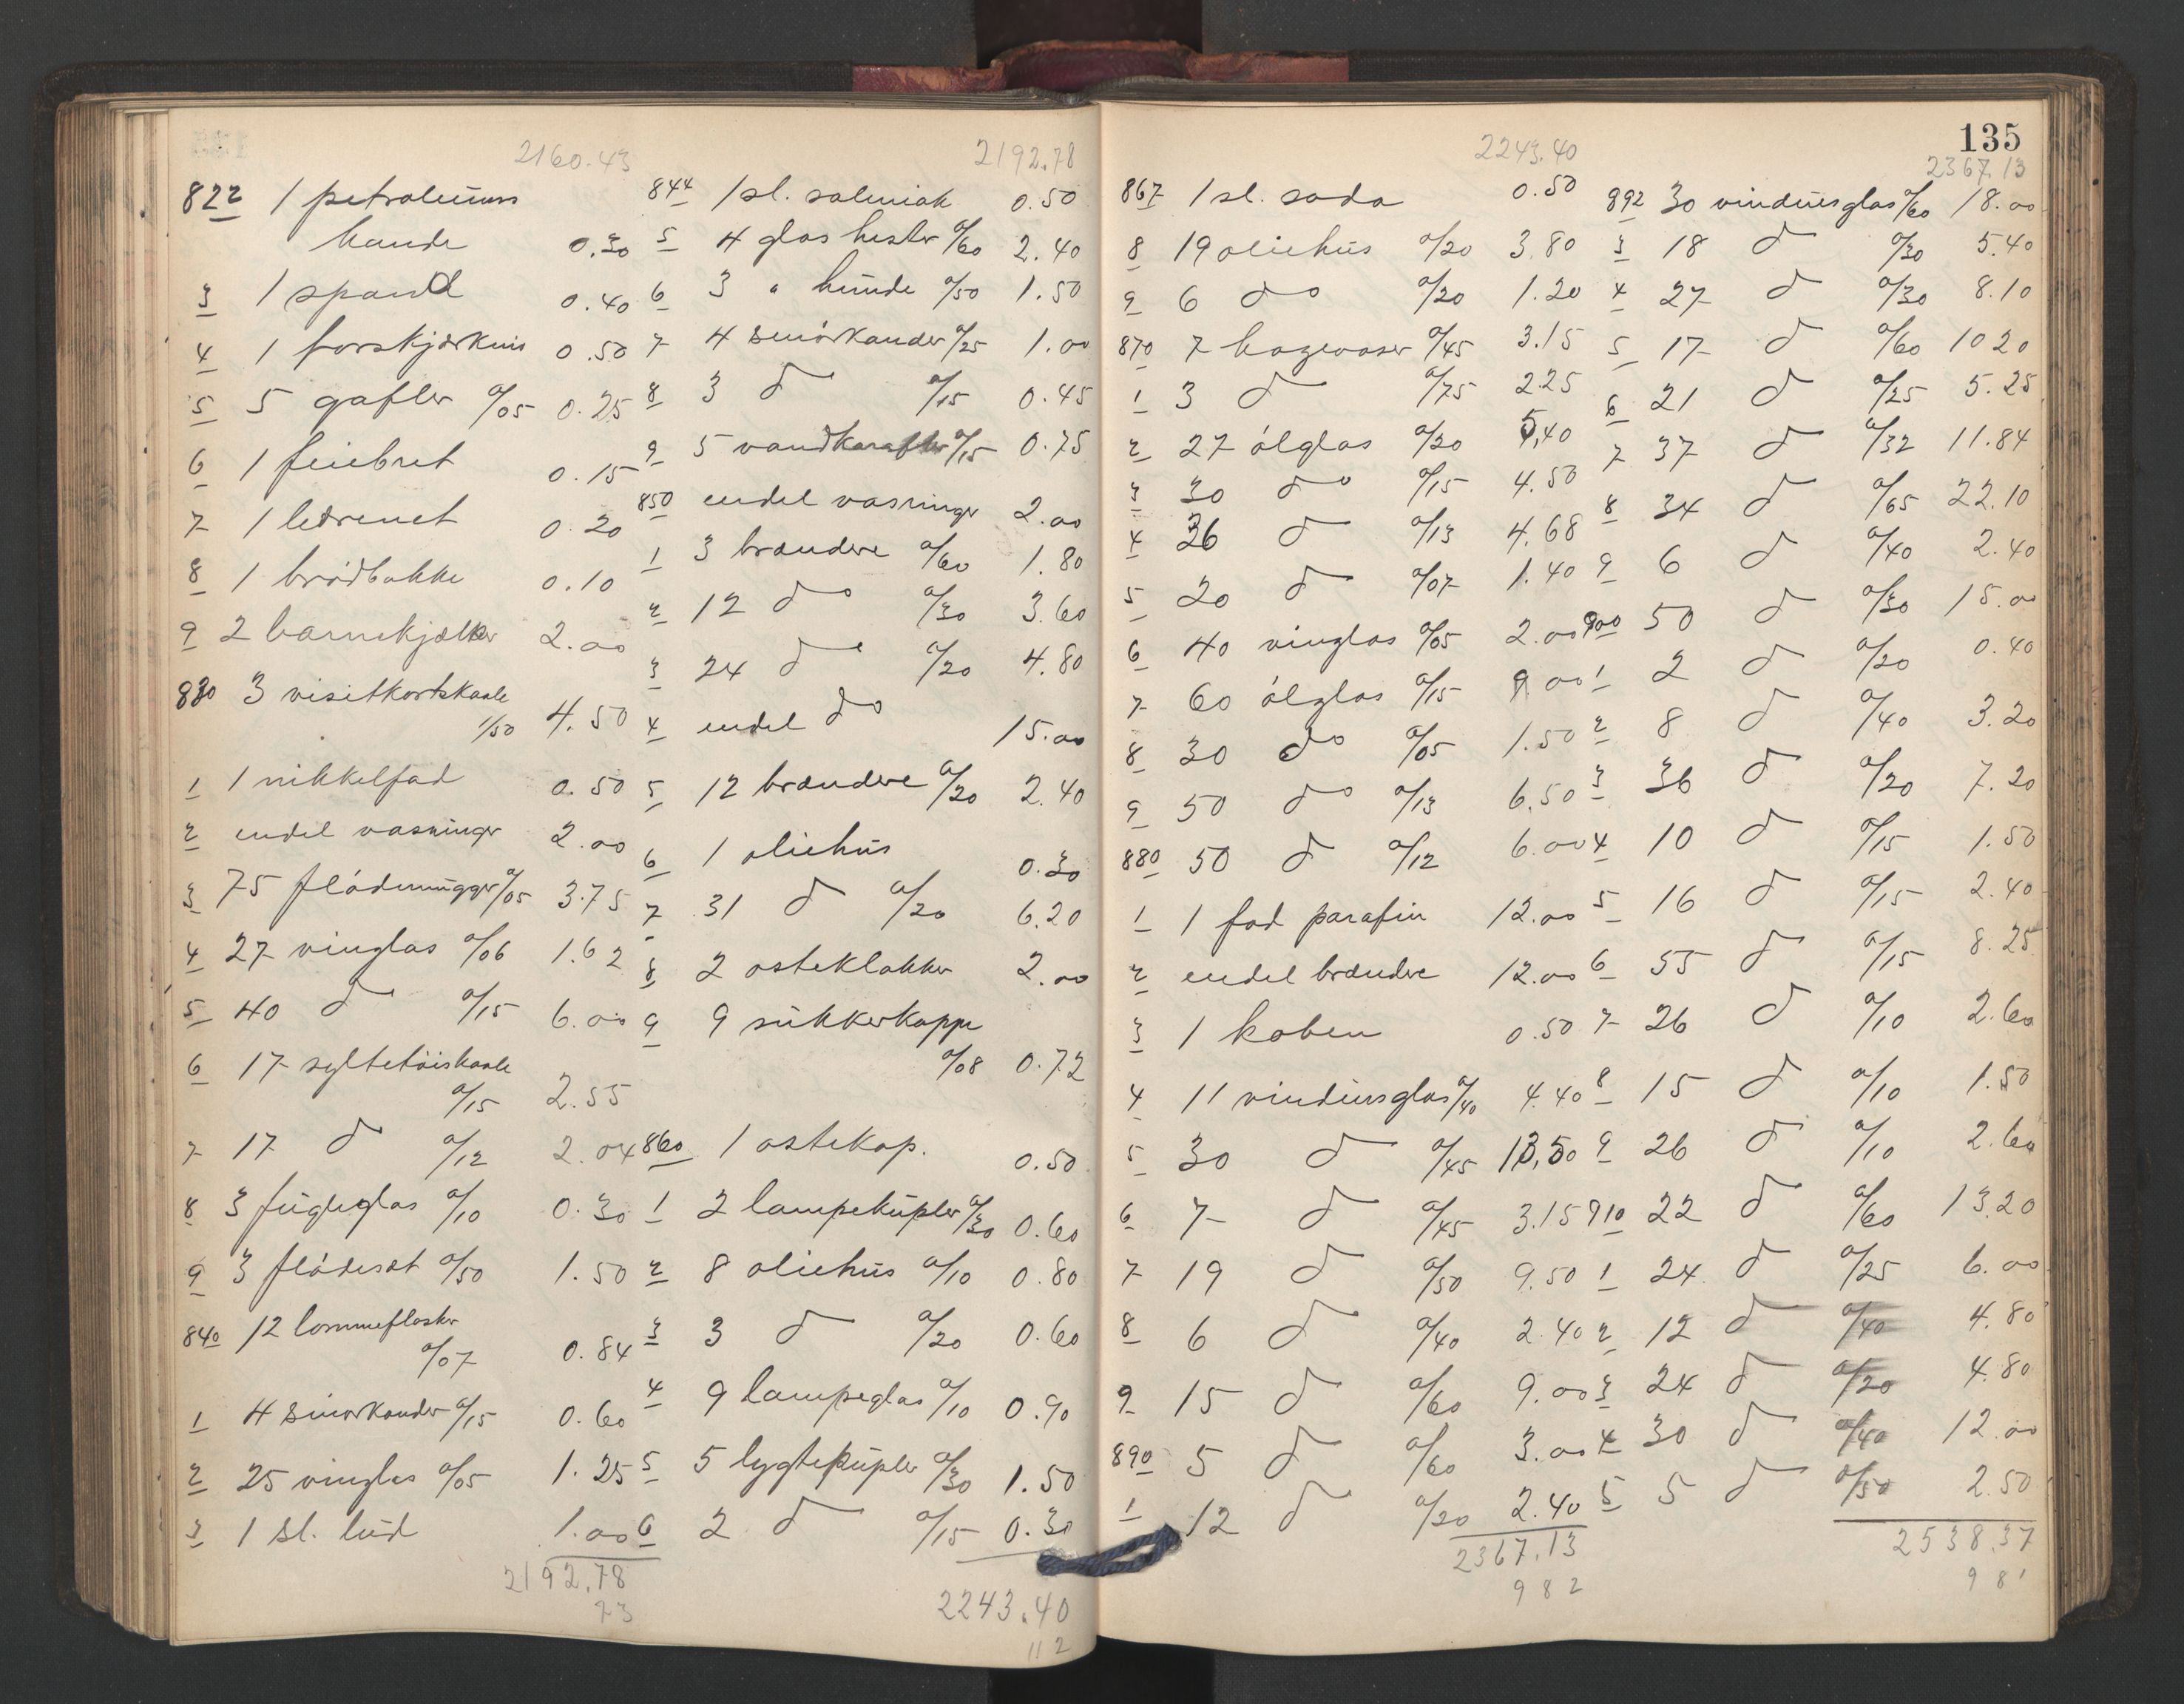 2160.43
822 1 petroleums
kande 0.30
3 1 spand 0.40
4 1 forskjærkniv 0.50
5 5 gafler a/05 0.25
6 1 feiebret 0.15
7 1 0.20
8 1 brödbakke 0.10
9 2 barnekjælker 2.00
830 3 visitkortskaale
1/50 4.50
1 1 nikkelfad 0.50
2 endel vasninger 2.00
3 75 flödemugger a/05 3.75
4 27 vinglas a/06 1.62
5 40 d a/15 6.00
6 17 syltetöiskaale
a/15 2.55
7 17 d a/12 2.04
8 3 fugleglas a/10 0.30
9 3 flödesæt a/50 1.50
840 12 lommeflasker
a/07 0.84
1 4 smörkander a/15 0.60
2 25 vinglas a/05 1.25
3 1 sl. lud 1.00
2192.78
73
2192.78
844 1 sl. salmiak 0.50
5 4 glas hester a/60 2.40
6 3 " hunde a/50 1.50
7 4 smörkander a/25 1.00
8 3 d a/15 0.45
9 5 vandkarafler a/15 0.75
850 endel vasninger 2.00
1 3 brændere a/60 1.80
2 12 do a/30 3.60
3 24 do a/20 4.80
4 endel do 15.00
5 12 brændere a/20 2.40
6 1 oliehus 0.30
7 31 d a/20 6.20
8 2 osteklokker 2.00
9 9 sukkerkopper
a/08 0.72
860 1 ostekop. 0.50
1 2 lampekupler a/30 0.60
2 8 oliehus a/10 0.80
3 3 d a/20 0.60
4 9 lampeglas a/10 0.90
5 5 lygtekupler a/30 1.50
6 2 d a/15 0.30
2243.40
112
2243.40
867 1 sl. soda 0.50
8 19 oliehus a/20 3.80
9 6 do a/20 1.20
870 7 hagevaser a/45 3.15
1 3 d a/75 2.25
2 27 ölglas a/20 5,40
3 30 do a/15 4.50
4 36 d a/13 4.68
5 20 d a/07 1.40
6 40 vinglas a/05 2.00
7 60 ölglas a/15 9.00
8 30 do a/05 1.50
9 50 do a/13 6.50
880 50 d a/12 6.00
1 1 fad parafin 12.00
2 endel brændere 12.00
3 1 koben 0.50
4 11 vindusglas a/40 4.40
5 30 d a/45 13,50
6 7 d a/45 3.15
7 19 d a/50 9.50
8 6 d a/40 2.40
9 15 d a/60 9.00
890 5 d a/60 3.00
1 12 d a/20 2.40
2367.13
982
135
2367.13
892 30 vindusglas a/60 18.00
3 18 d a/30 5.40
4 27 d a/30 8.10
5 17 d a/60 10 20
6 21 d a/25 5.25
7 37 d a/32 11.84
8 34 d a/65 22.10
9 6 d a/40 2.40
900 50 d a/30 15.00
1 2 d a/20 0.40
2 8 d a/40 3.20
3 36 d a/20 7.20
4 10 d a/15 1.50
5 16 d a/15 2.40
6 55 d a/15 8.25
7 26 d a/10 2.60
8 15 d a/10 1.50
9 26 d a/10 2.60
910 22 d a/60 13.20
1 24 d a/25 6.00
2 12 d a/40 4.80
3 24 d a/20 4.80
4 30 d a/40 12.00
5 5 d a/50 2.50
2538.37
98